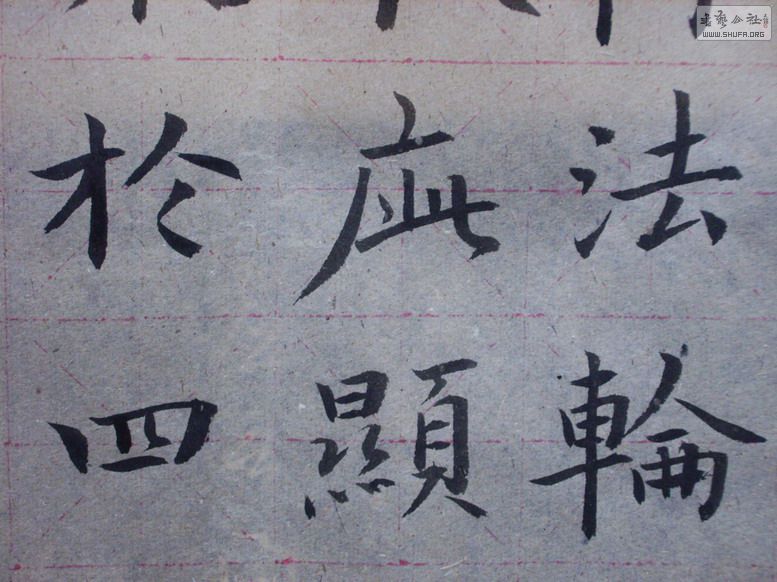 法輪
顯
於四
书艺公社
WWW.SHUFA.ORG